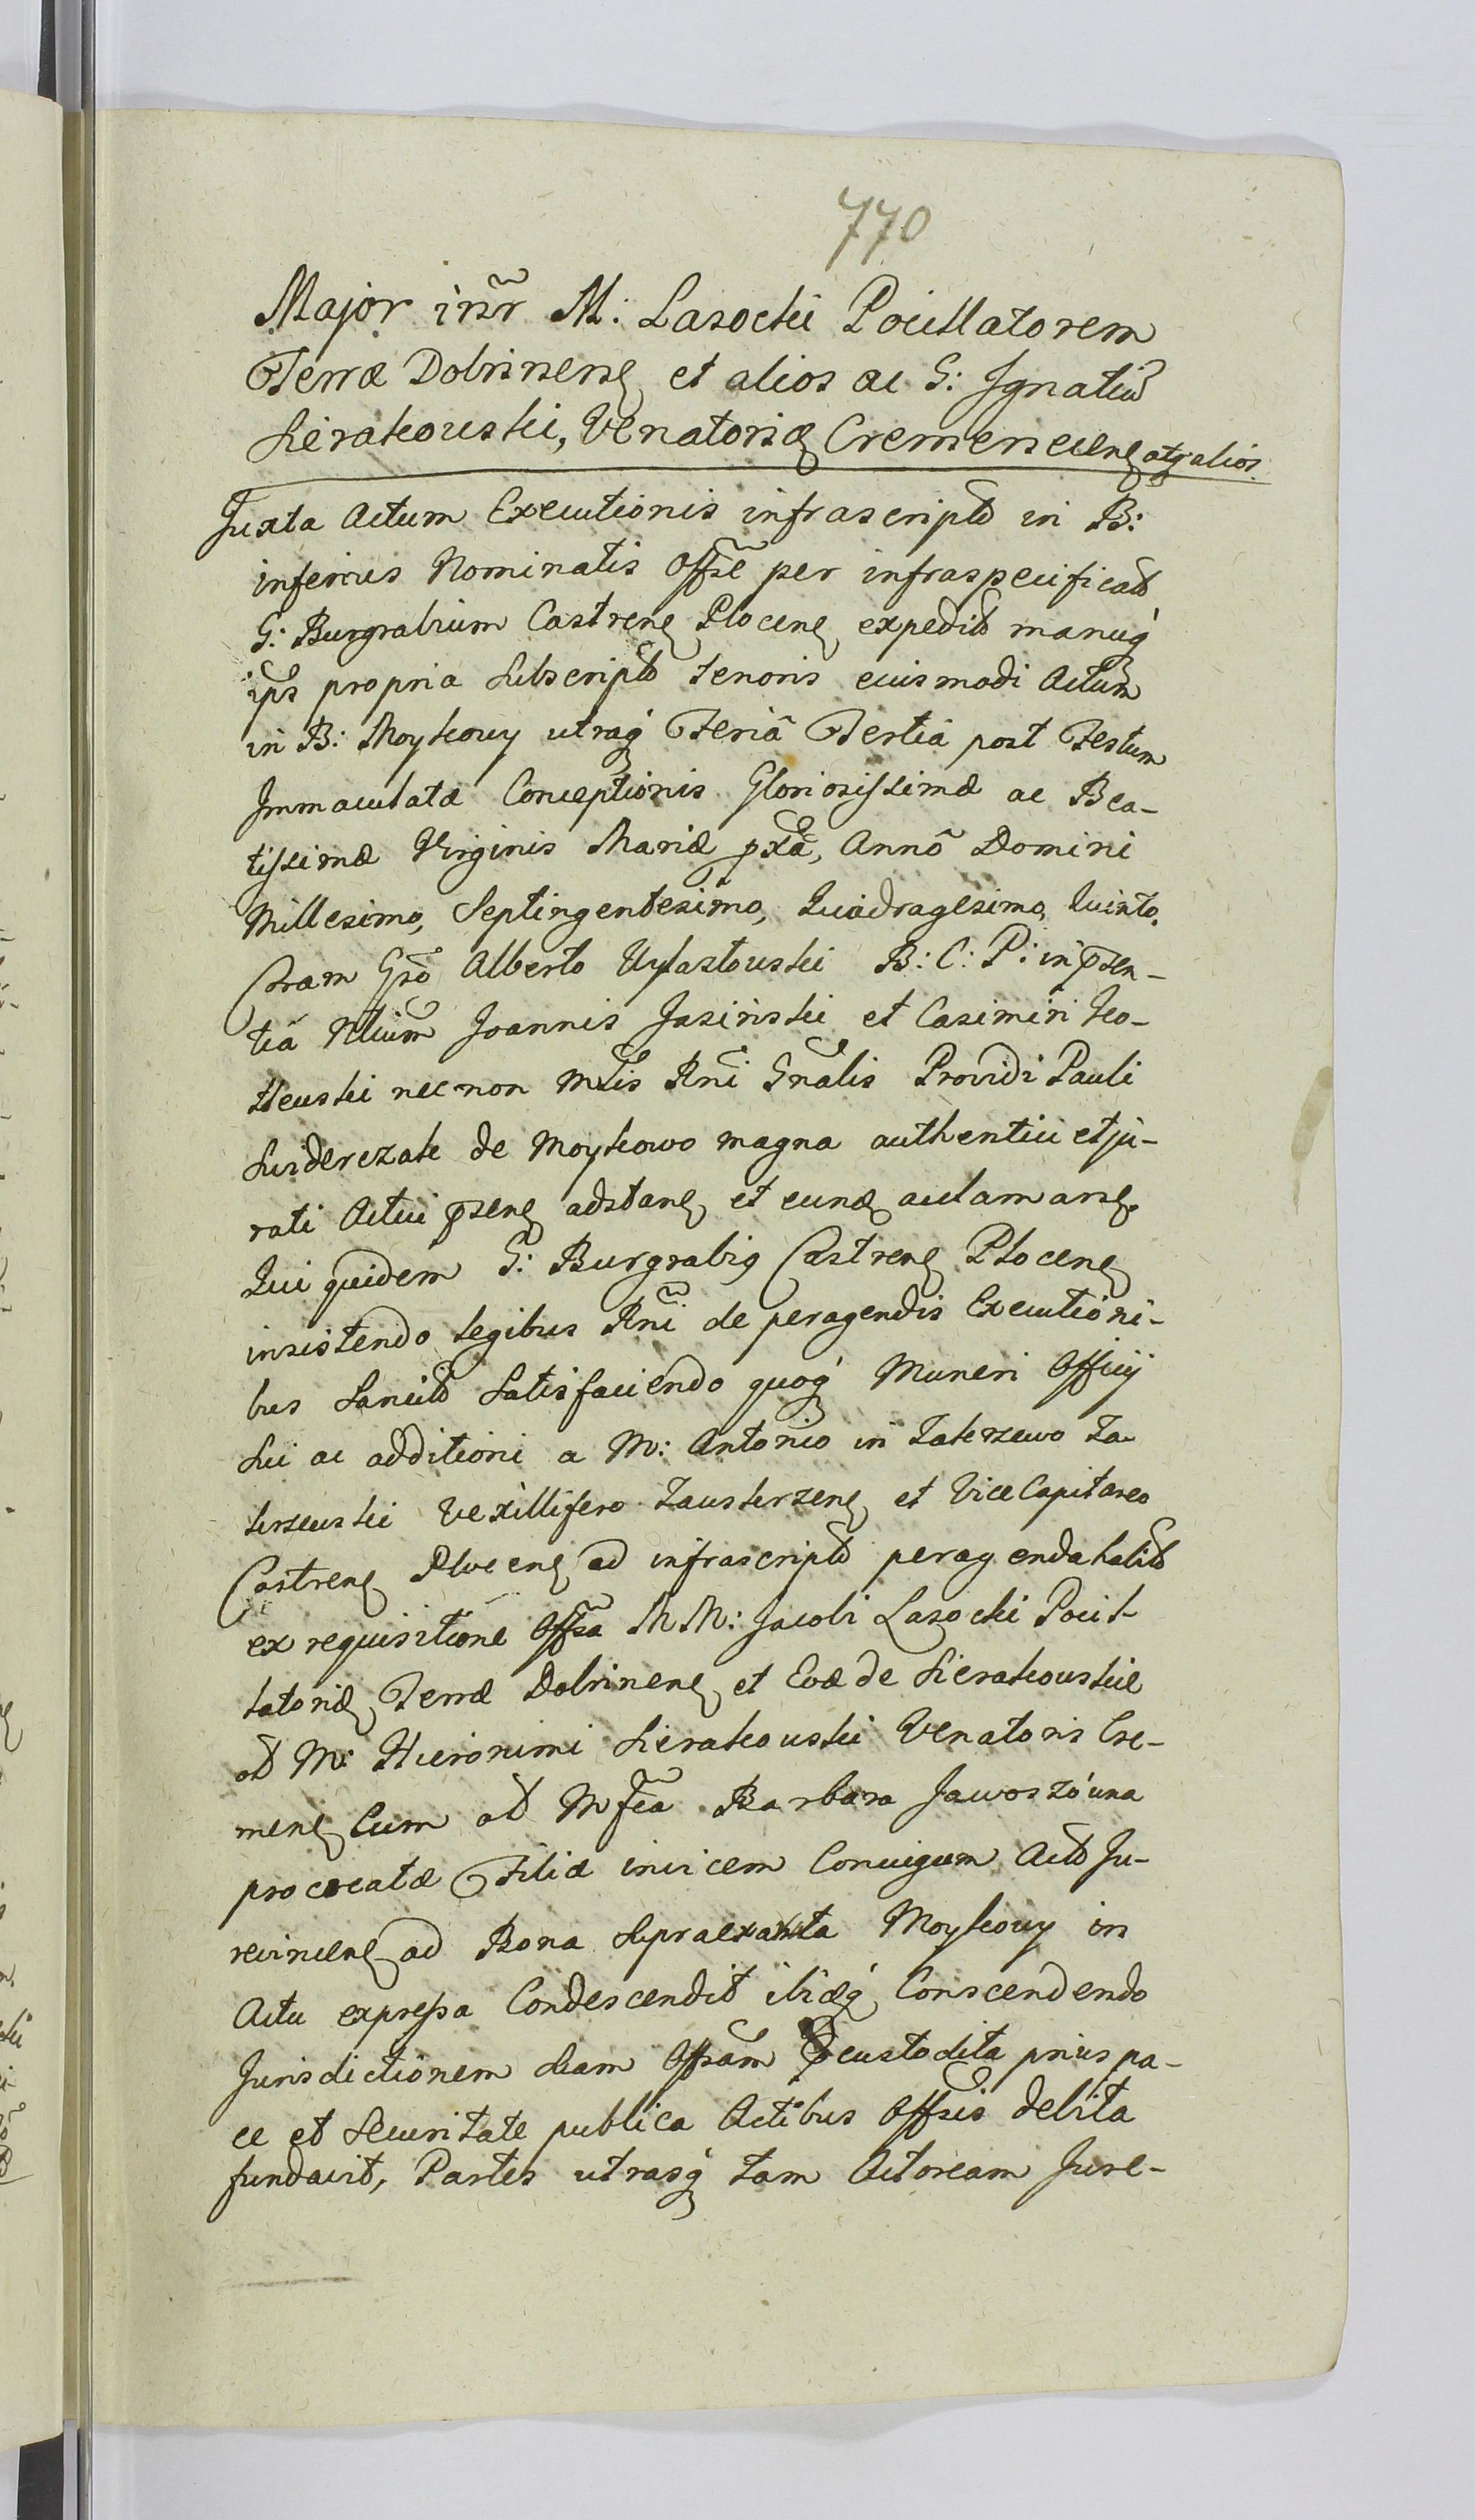 770
Major inr̃ M: Lasocki Pocillatorem
Terræ Dobrinenẽ et alios ac G: Ignatiũ
Sierakowski, Venatoriæ Cremenecenẽ atq̨ alios.
Juxta Actum Executionis infrascript̃ in B:
inferius Nominatis Offse͂ per infraspecificat̃
G: Burgrabium Castrenẽ Plocenẽ expedit̃ manuq̨́
ips̃ propria Subscript̃ tenoris eiusmodi Actum
in B: Moykowy utraq̨́ Feriâ Tertiâ post Festum
Immaculatæ Conceptionis Gloriosissimæ ac Bea-
tissimæ Virginis Mariæ px̃ã, Annõ Domini
Millesimo, Septingentesimo, Quadragesimo, Quinto.
Coram Gsõ Alberto Wylaztowski B: C: P: in p̃sen-
tiâ Nlium̃ Joannis Jasinski et Casimiri Ko-
tkowski nec non Mt̃is Rñi Gñalis Providi Pauli
Swiderczak de Moykowo magna authentici et ju-
rati Actui p̃senẽ adstanẽ et eund̃ aclamanẽ.
Qui quidem G: Burgrabiꝰ Castrenẽ Plocenẽ
insistendo legibus Rñi de peragendis Executioni-
bus Sancit̃ Satisfaciendo quoq̨́ Muneri Officij
Sui ac additioni a M: Antonio in Zakrzewo Za-
krzewski Vexillifero Zauskrzenẽ et ViceCapitaneo
Castrenẽ Plocenẽ ad infrascript̃ peragenda habit̃
ex requisitione Offsã MM: Jacobi Lasocki Pocil-
latoriæ Terræ Dobrinenẽ et Evæ de Sierakowskie
ol̃ M: Hieronimi Sierakowski Venatoris Cre-
menẽ Cum ol̃ Mfcã Barbara Jaworzówna
procreatæ Filiæ invicem Conjugum Act̃ Ju-
revincenẽ ad Bona Supraexa ta Moykowy in
Actu expressa Condescendit ibidq̨́ Conscendendo
Jurisdictionem Suam Offsam̃ p̃custodita prius pa-
ce et Securitate publica Actibus Offsis̃ debita
fundavit, Partes utrasq̨́ tam Actoream Jure-